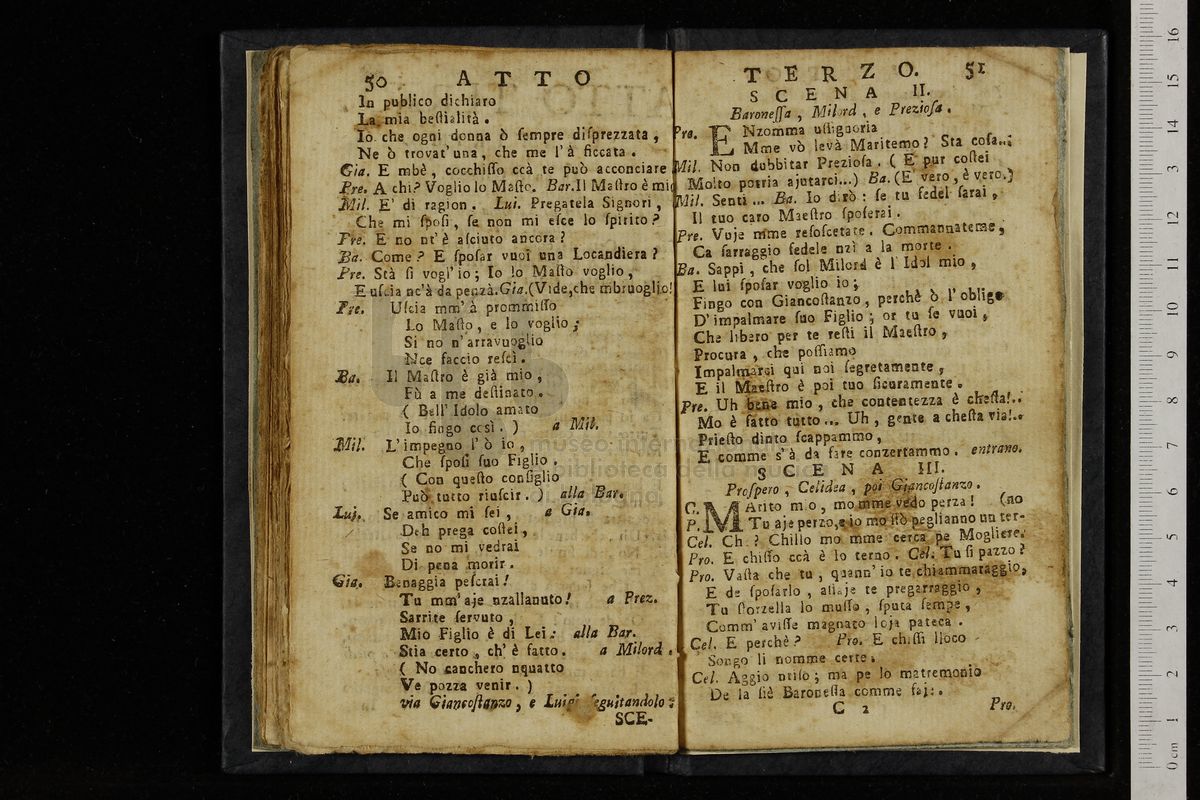 50 ATTO
In publico dichiaro
La mia beſtialità.
Io che ogni donna ò ſempre diſprezzata,
Ne ò trovat'una, che me l'à ficcata.
Gia. E mbè, cocchiſſo ccà te può acconciare
Pre. A chi? Voglio lo Maſto. Bar. Il Maſtro è mio
Mil. E' di ragion. Lui. Pregatela Signori,
Che mi ſpoſi, ſe non mi eſce lo ſpirito?
Pre. E no nt'è aſciuto ancora?
Ba. Come? E ſpoſar vuoi una Locandiera?
Pre. Stà ſi vogl'io; Io lo Maſto voglio,
E uſcia nc'à da penzà. Gia. (Vide, che mbruoglio!
Pre. Uſcia mm'à prommiſſo
Lo Maſto, e lo voglio;
Si no n'arravuoglio
Nce faccio reſcì.
Ba. Il Maſtro è già mio,
Fù a me deſtinato.
( Bell'Idolo amato
Io fingo così. ) a Mil.
Mil. L'impegno l'ò io,
Che ſpoſi ſuo Figlio.
( Con queſto conſiglio
Può tutto riuſcir. ) alla Bar.
Lui. Se amico mi ſei, a Gia.
Deh prega coſtei,
Se no mi vedrai
Di pena morir.
Gia. Benaggia peſcrai!
Tu mm'aje nzallanuto! a Prez.
Sarrite ſervuto,
Mio Figlio è di Lei: alla Bar.
Stia certo, ch'è fatto. a Milord.
( No canchero nquatto
Ve pozza venir. )
via Giancoſtanzo, e Luigi ſeguitandolo
SCE-
TERZO. 51
SCENA II.
Baroneſſa, Milord, e Prezioſa.
Pre. ENzomma uſſignoria
Mme vò levà Maritemo? Sta coſa..:
Mil. Non dubbitar Prezioſa. ( E pur coſtei
Molto potria ajutarci...) Ba. (E vero, è vero.)
Mil. Senti... Ba. Io dirò: ſe tu fedel ſarai,
Il tuo caro Maeſtro ſpoſerai.
Pre. Vuje mme reſoſcetate. Commannateme,
Ca ſarraggio fedele nzì a la morte.
Ba. Sappi, che ſol Milord è l'Idol mio,
E lui ſpoſar voglio io;
Fingo con Giancoſtanzo, perchè ò l'obligo
D'impalmare ſuo Figlio; or tu ſe vuoi,
Che libero per te reſti il Maeſtro,
Procura, che poſſiamo
Impalmarci qui noi ſegretamente,
E il Maeſtro è poi tuo ſicuramente.
Pre. Uh bene mio, che contentezza è cheſta!..
Mo è fatto tutto... Uh, gente a cheſta via!..
Prieſto dinto ſcappammo,
E comme s'à da fare conzertammo. entrano.
SCENA III.
Proſpero, Celidea, poi Giancoſtanzo.
C. MArito mio, mo mme vedo perza! (no
P. Tu aje perzo, e io mo ſtò peglianno un ter-
Cel. Ch.? Chillo mo mme cerca pe Mogliere.
Pro. E chiſſo ccà è lo terno. Cel. Tu ſi pazzo?
Pro. Vaſta che tu, quann'io te chiammaraggio,
E de ſpoſarlo, aſſaje te pregarraggio,
Tu ſtorzella lo muſſo, ſputa ſempe,
Comm'aviſſe magnato loja pateca.
Cel. E perchè? Pro. E chiſſi lloco
Songo li nomme certe.
Cel. Aggio ntiſo; ma pe lo matremonio
De la ſiè Baroneſſa comme faje.
C 2 Pro.
museo internazionale
biblioteca della musica
di bologna
16
15
14
13
12
11
10
9
8
7
6
5
4
3
2
1
0 cm